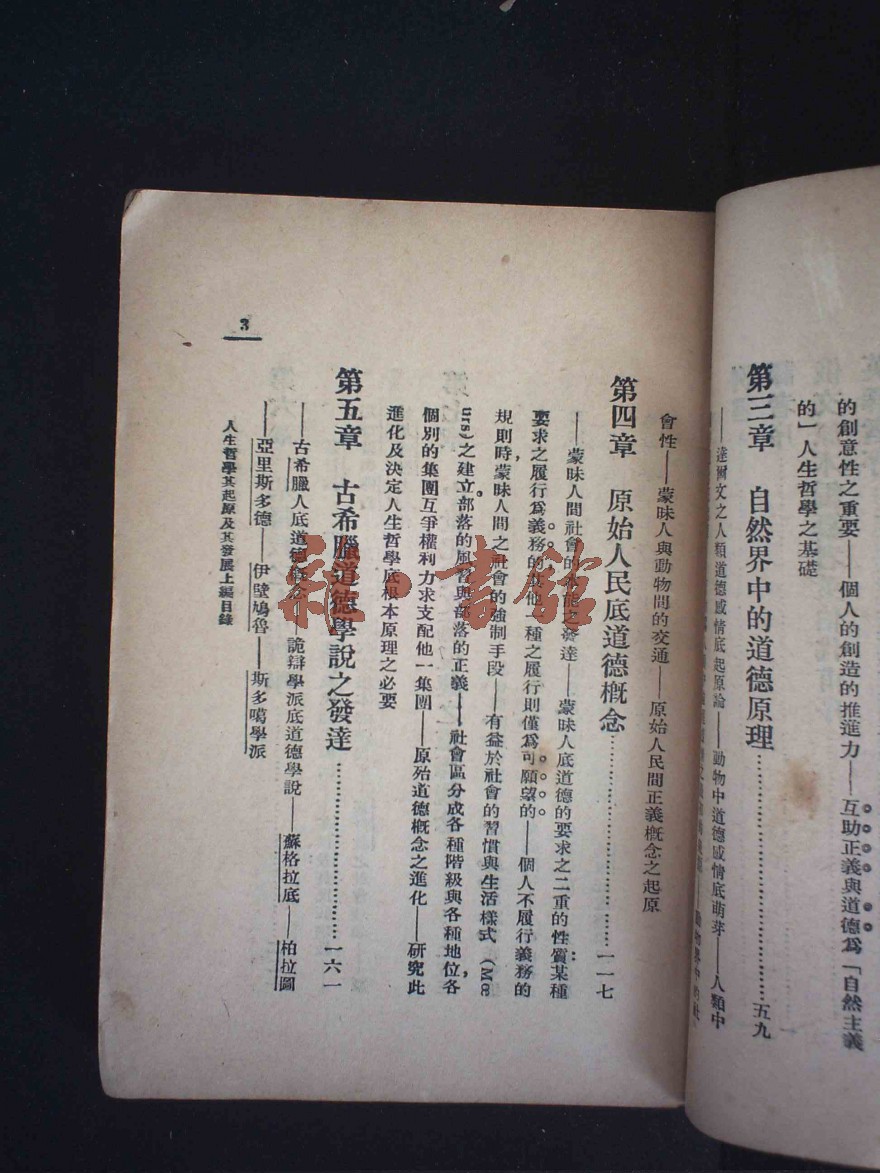 的創意性之重要——個人的創造的推進力——互助正義與道德爲「自然主義
的」人生哲學之基礎
第三章　自然界中的道德原理……五九
——達爾文之人類道德感情底起原論——動物中道德感情底萌芽——人類中
界中的社
會性——蒙昧人與動物間的交通——原始人民間正義概念之起原
第四章　原始人民底道德概念……一一七
——蒙昧人間社會的本能之發達——蒙昧人底道德的要求之二重的性質：某種
要求之履行爲義務的，其他一種之履行則僅爲可願望的——個人不履行義務的
規則時蒙昧人間之社會的強制手段——有益於社會的習慣與生活樣式（Mœ
urs)之建立。部落的風習與部落的正義——社會區分成各種階級與各種地位，各
個別的集團互爭權利力求支配他一集團——原殆道德概念之進化——研究此
進化及決定人生哲學底根本原理之必要
第五章　古希臘道德學說之發達……一六一
——古希臘人底道德概念——詭辯學派底道德學說——蘇格拉底——柏拉圖
——亞里斯多德——伊壁鳩魯——斯多噶學派
人生哲學其起原及其發展上編目錄
3